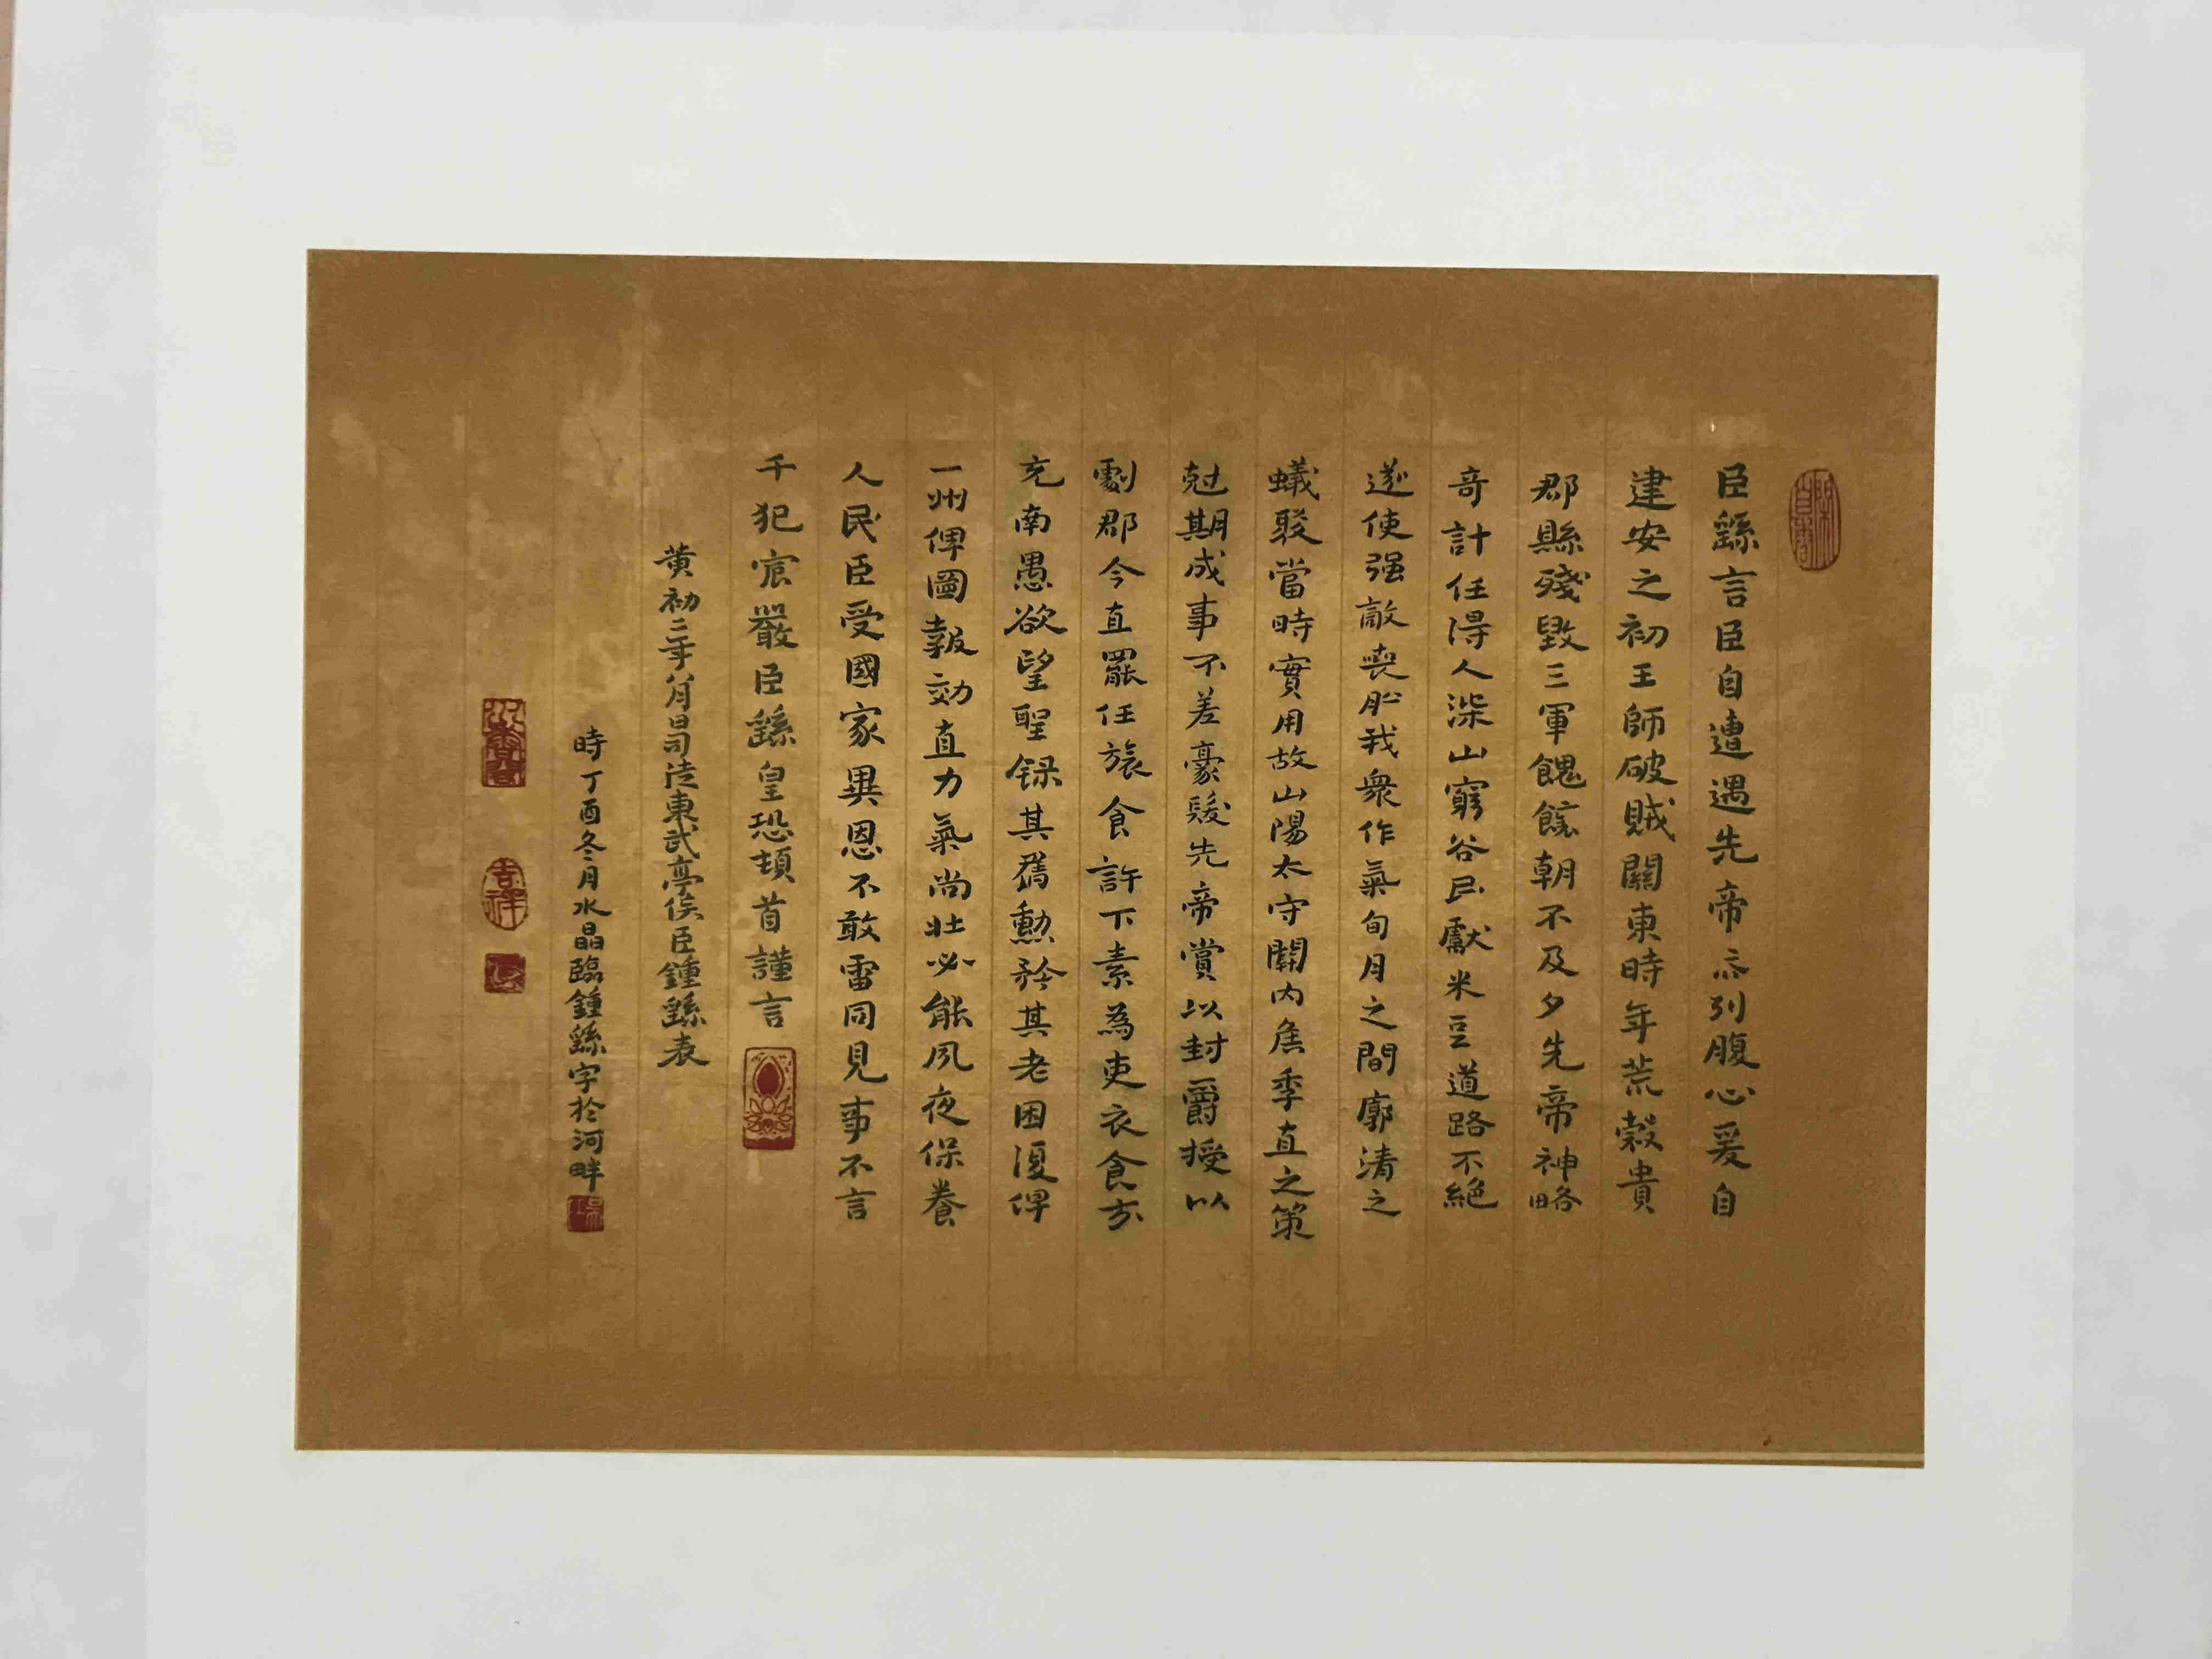 臣繇言臣自遭遇先帝忝列腹心爰自
建安之初王師破賊關東時年荒穀貴
郡縣殘毀三軍餽饟朝不及夕先帝神略
奇計任得人深山窮谷民獻米豆道路不絕
遂使强敵喪膽我衆作氣旬月之間廓清之
蟻聚當時實用故山陽太守關内侯季直之策
尅期成事不差豪髮先帝賞以封爵授以
劇郡今直罷任旅食許下素為吏衣食不
充南愚欲望聖録其舊勲矜其老困復俾
一州俾圖報効直力氣尚壯必能夙夜保養
人民臣受國家異恩不敢雷同見事不言
千犯宸嚴臣繇皇恐頓首謹言
黄初二年八月日司徒東武亭侯臣鍾繇表
時丁酉冬月水晶臨鍾繇字於河畔
吉祥